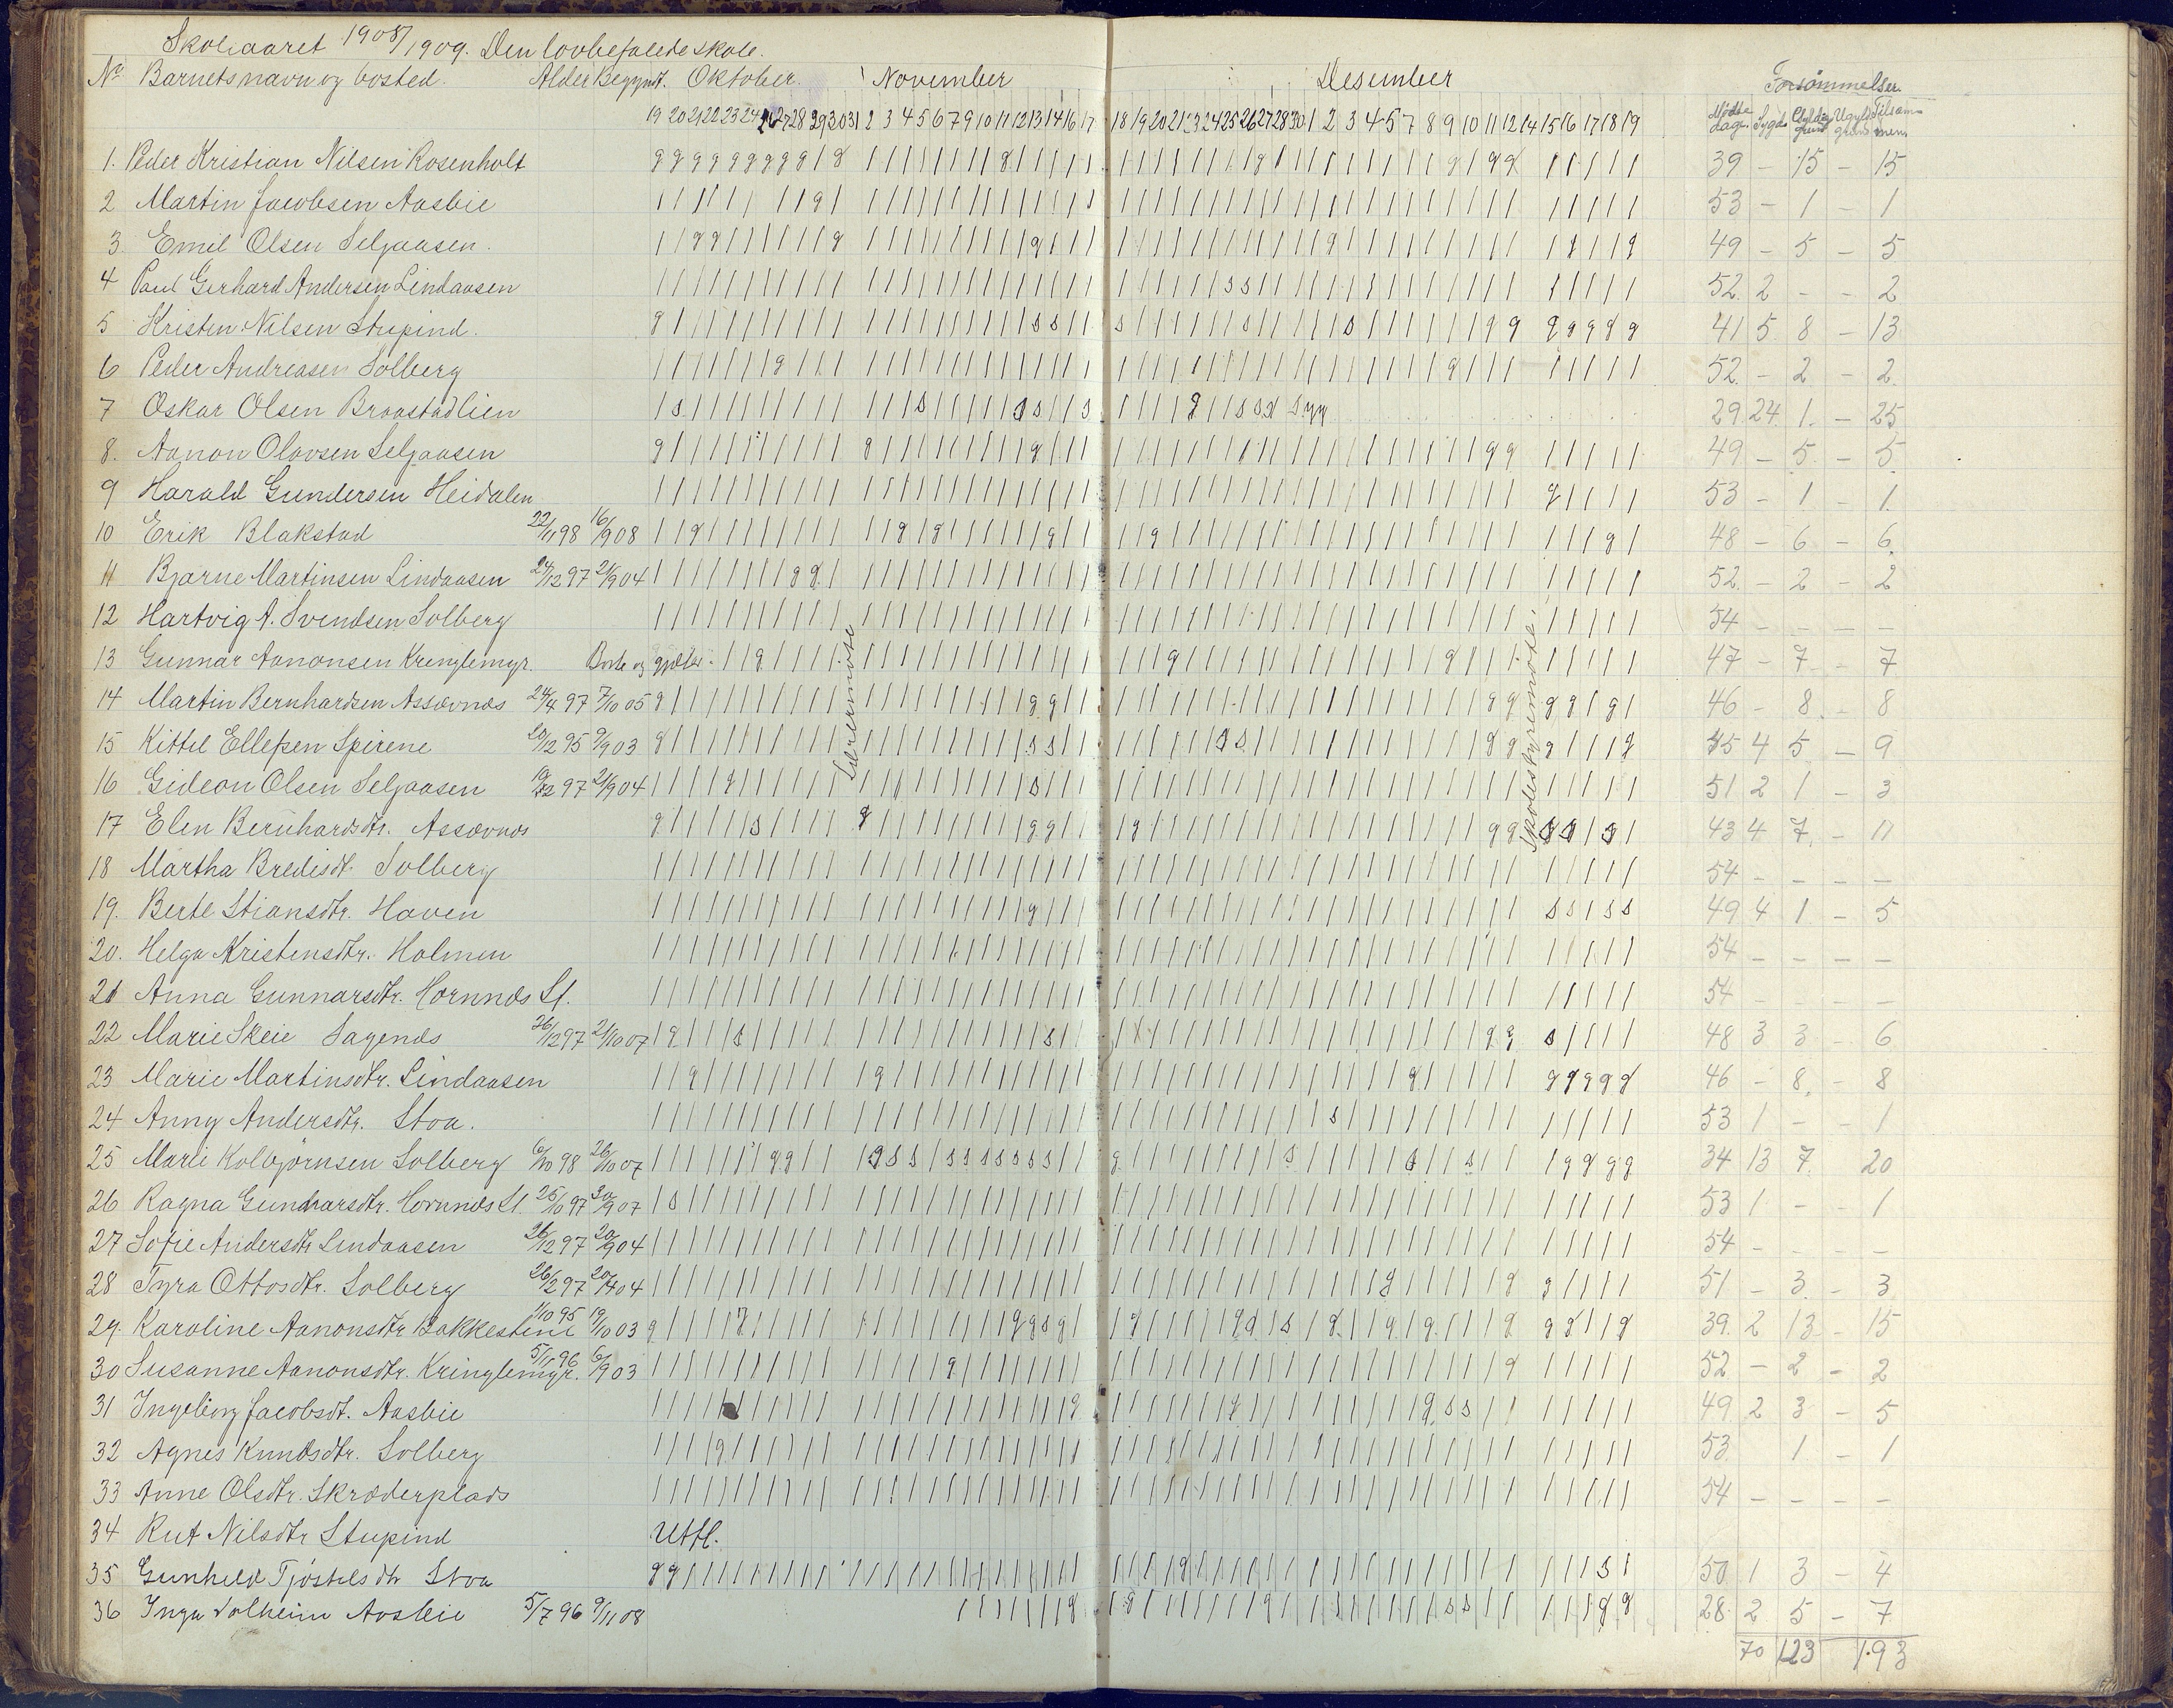 Skoleaaret 1908/1909. Den lovbefalede skole.
No Barnets navn og bosted. Alder Begynt. Oktober. November Desember Forsömmelser.
19 20 21 22 23 24 26 27 28 29 30 31 2 3 4 5 6 7 9 10 11 12 13 14 16 17 18 19 20 21 23 24 25 26 27 28 30 1 2 3 4 5 7 8 9 10 11 12 14 15 16 17 18 19 Mødte dage. Sygd. Gyldig grund Ugyld. grund Tilsammen.
1. Peder Kristian Nilsen Rosenholt 39 - 15 - 15
2 Martin Jacobsen Aasbie 53 - 1 - 1
3. Emil Olsen Seljaasen. 49 - 5 - 5
4 Paul Gerhard Andersen Lindaasen 52. 2 - - 2
5 Kristen Nilsen Stupind. 41 5 8 - 13
6 Peder Andreasen Solberg 52. - 2 - 2.
7 Oskar Olsen Braastadlien 29. 24. 1. - 25
8. Aanon Olavsen Seljaasen 49 - 5 - 5
9 Harald Gundersen Heidalen 53 - 1 - 1.
10 Erik Blakstad 22/11 98 16/9 08 48 - 6 - 6.
11 Bjarne Martinsen Lindaasen 24/12 97 21/9 04 52. - 2 - 2
12 Hartvig A. Svendsen Solberg 54 - - - -
13 Gunnar Aanonsen Krenglemyr. Borte og gjæter. 47 - 7 - 7
14 Martin Bernhardsen Assævnæs 24/4 97 7/10 05 46 - 8. - 8
15 Kittel Ellefsen Spirene 20/12 95 9/9 03 45 4 5 - 9
16 Gideon Olsen Seljaasen 97 21/9 04 51 2 1 - 3
17 Elen Bernhardsdtr. Assævnæs 43 4 7. - 11
Lærermøte
Skolestyremøte.
18 Martha Bredisdt. Solberg 54 - - - -
19. Berte Stiansdtr. Haven 49 4 1 - 5
20. Helga Kristensdtr. Holmen 54 - - - -
21 Anna Gunnarsdtr. Hornnæs Sl. 54 - - - -
22 Marie Skeie Sagenæs 26/12 97 21/10 07 48 3 3 - 6
23 Marie Martinsdtr. Lindaasen 46 - 8. - 8
24 Anny Andersdtr. Stoa. 53 1 - - 1
25 Marie Kolbjörnsen Solberg 6/10 98 26/10 07 34 13 7. 20
26 Ragna Gunnarsdtr. Hornnæs Sl. 25/10 97 20/9 07 53 1 - - 1
27 Sofie Andersdtr Lindaasen 26/12 97 20/9 04 54 - - - -
28 Tyra Ottosdtr. Solberg 26/2 97 04 51 - 3. - 3
29. Karoline Aanonsdtr Bakkestene 1/10 95 19/10 03 39. 2 13 - 15
30 Susanne Aanonsdtr. Kringlemyr. 5/11 96 6/9 03 52 - 2 - 2
31 Ingeborg Jacobsdt. Aasbie 49 2 3 - 5
32 Agnes Knudsdtr. Solberg 53. 1 - 1
33 Anne Olsdtr. Skræderplads 54 - - - -
34 Rut Nilsdtr Stupind Utfl.
35 Gunhild Tjöstelsdtr Stoa 50. 1 3 - 4
36 Inga Solheim Aasbie 5/7 96 9/11 08 28. 2 5 - 7
70 123 193